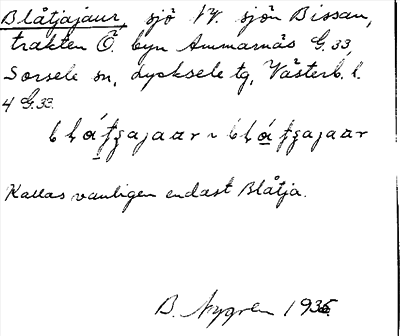 Blåtjajaur, sjö NV. sjön Bissan,
trakten Ö. byn Ammarnäs G.33,
Sorsele sn, Lycksele tg, Västerb. l.
4 G.33.
Kallas vanligen endast Blåtja.
B. Nygren 1935.